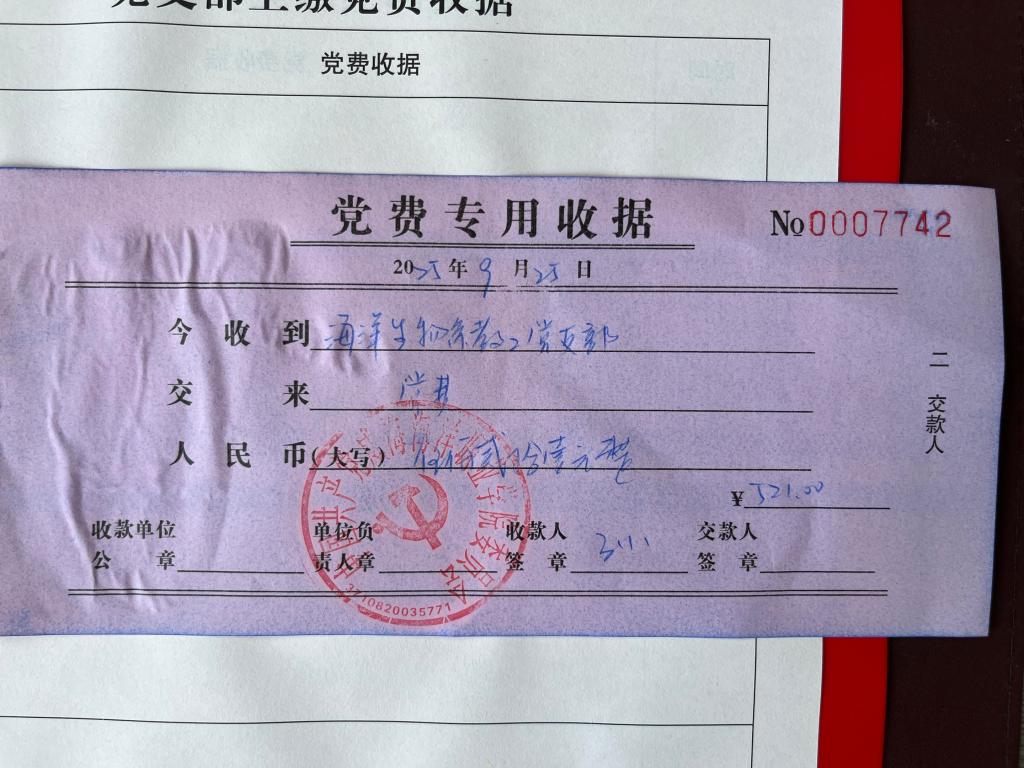 党支部上缴党费收据
党费收据
党费专用收据
No 0007742
2025年9月25日
今收到 海洋生物系教工党支部
交来 党费
人民币(大写) 伍佰贰拾壹元整
¥ 521.00
收款单位 单位负 收款人 交款人
公章 责人章 签章 签章
二 交款人
3710820035771